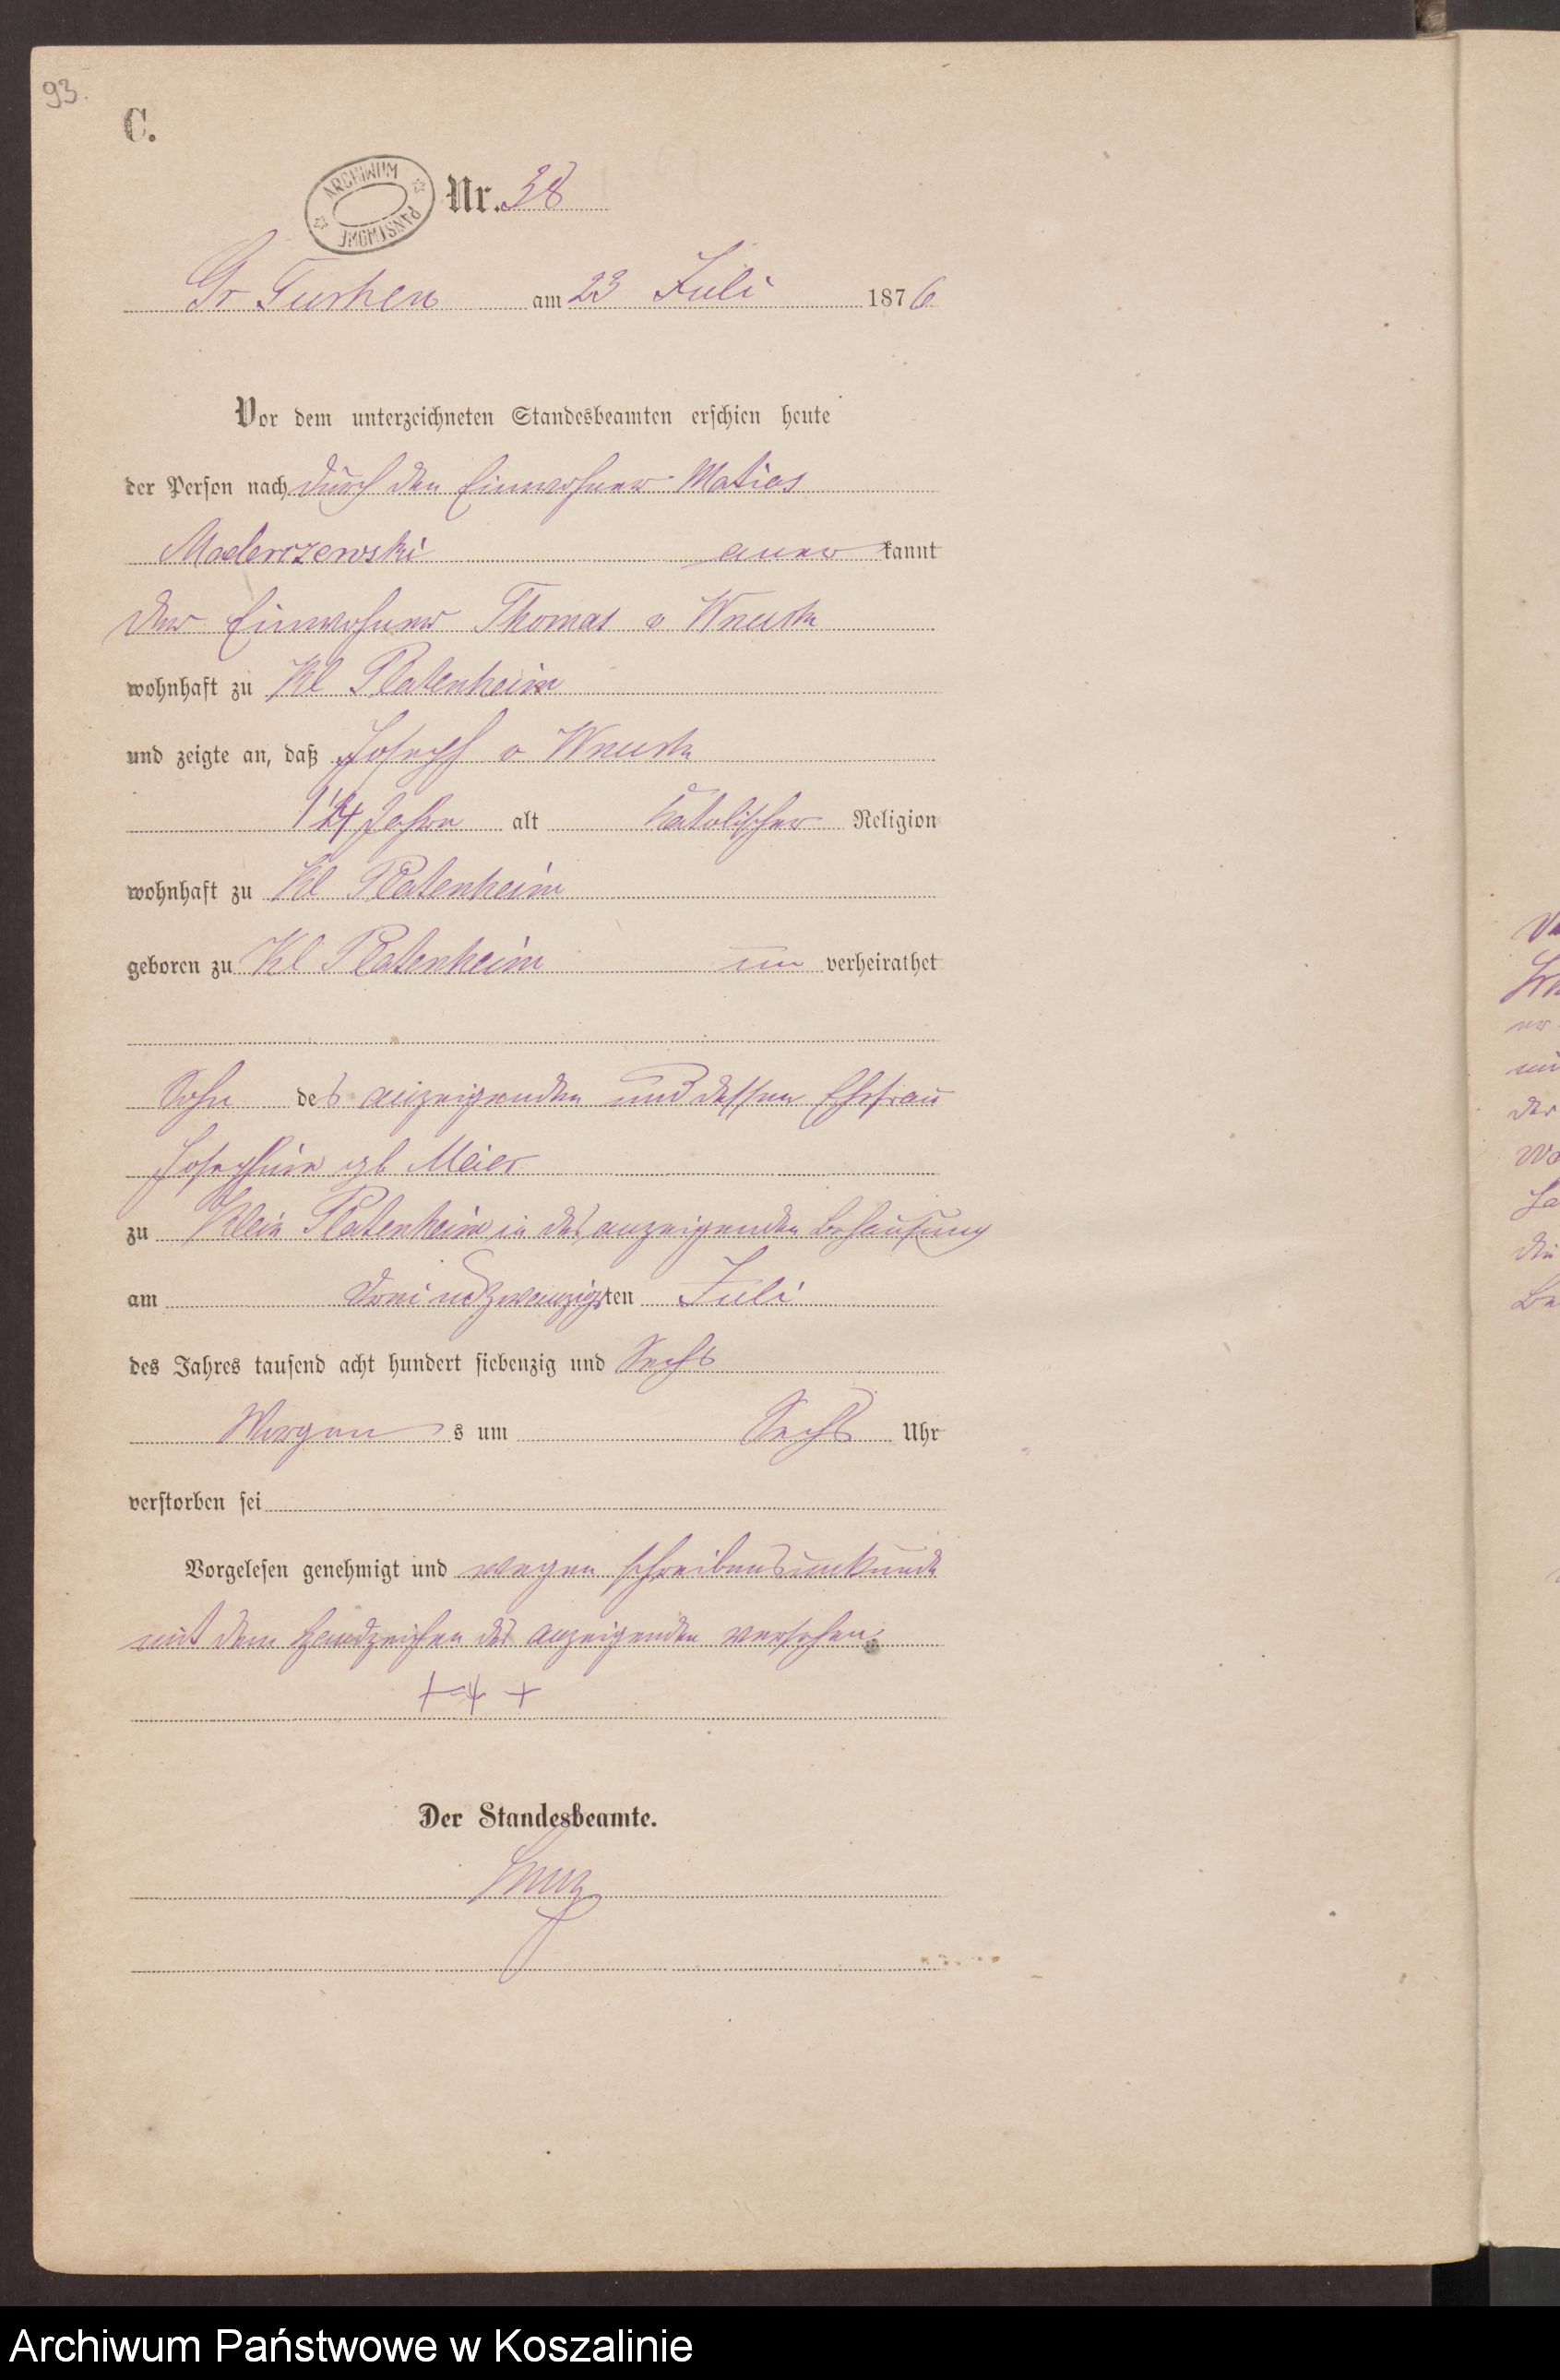 93.
C.
ARCHIWUM PAŃSTWOWE
Nr. 38
Gr Tuchen am 23 Juli 1876
Vor dem unterzeichneten Standesbeamten erschien heute
der Person nach durch den Einwohner Matias
Maderczewski aner kannt
der Einwohner Thomas v Wnuck
wohnhaft zu Kl Platenheim
und zeigte an, daß Joseph v Wnuck
Jahre alt katolischer Religion
wohnhaft zu Kl Platenheim
geboren zu Kl Platenheim un verheirathet
Sohn des anzeigenden und dessen Ehefrau
Josephine gb Meier
zu Klein Platenheim in des anzeigenden Behausung
am Drei und zwanzigsten Juli
des Jahres tausend acht hundert siebenzig und Sechs
Morgen s um Sechs Uhr
verstorben sei
Vorgelesen genehmigt und wegen schreibensunkunde
mit dem Handzeichen des anzeigenden versehen
+ + +
Der Standesbeamte.
Archiwum Państwowe w Koszalinie